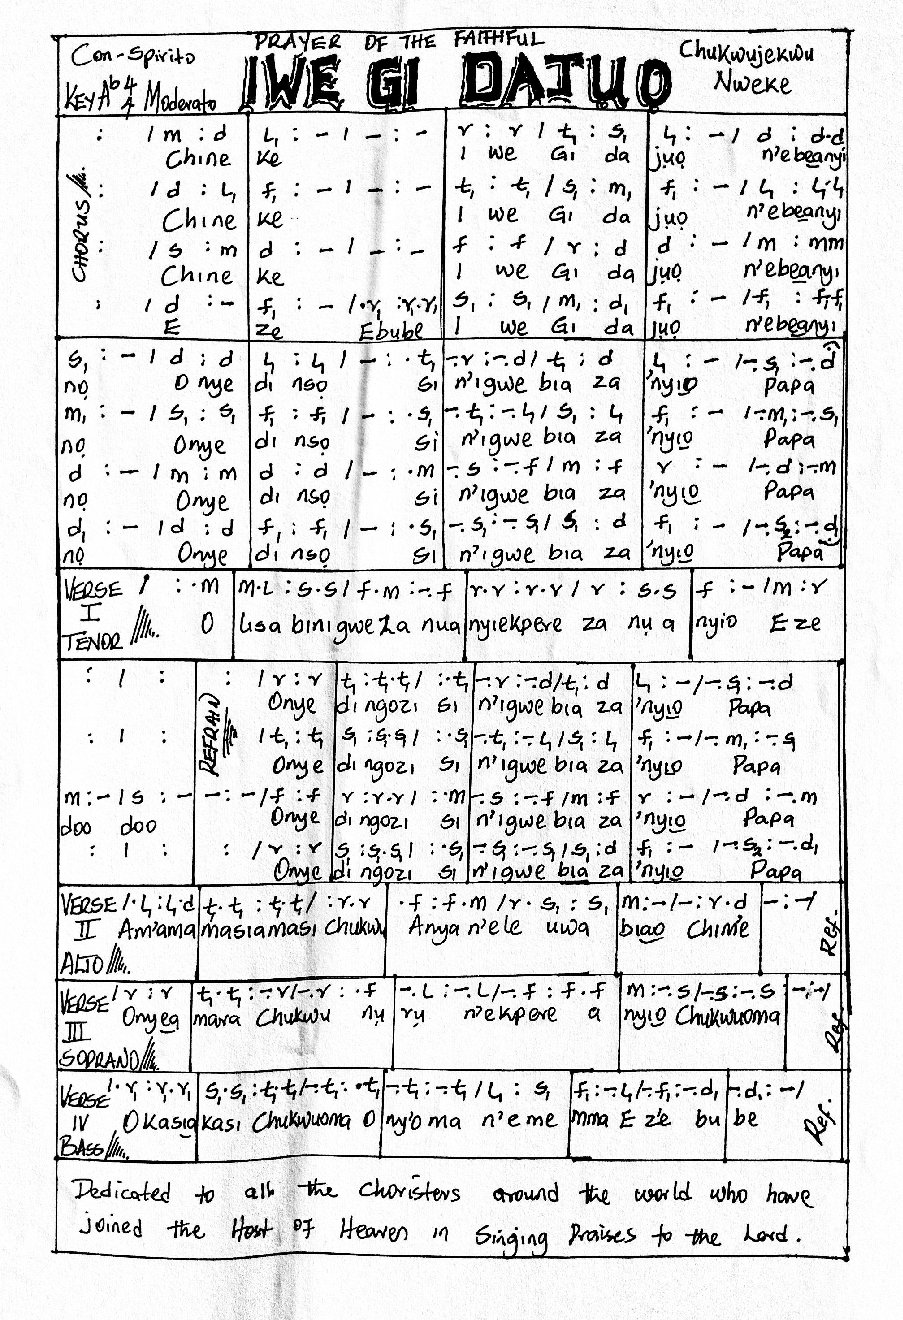 PRAYER OF THE FAITHFUL
Con-Spirito IWE GI DAJUO Chukwujekwu
Key Ab 4/4 Moderato Nweke
CHORUS
: / m : d | l₁ : – / – : – | r : r / t₁ : s₁ | l₁ : – / d : d·d
Chine ke I we Gi da jụọ n'ebeanyi
: / d : l₁ | f₁ : – / – : – | t₁ : t₁ / s₁ : m₁ | f₁ : – / l₁ : l₁·l₁
Chine ke I we Gi da jụọ n'ebeanyi
: / s : m | d : – / – : – | f : f / r : d | d : – / m : mm
Chine ke I we Gi da jụọ n'ebeanyi
: / d : – | f₁ : – / ·r₁ : r₁·r₁ | s₁ : s₁ / m₁ : d₁ | f₁ : – / f₁ : f₁f₁
E ze Ebube I we Gi da jụọ n'ebeanyi
s₁ : – / d : d | l₁ : l₁ / – : ·t₁ | –·r : –·d / t₁ : d | l₁ : – / –·s₁ : –·d
nọ Onye dị nsọ si n'igwe bia za 'nyịọ Papa
m₁ : – / s₁ : s₁ | f₁ : f₁ / – : ·s₁ | –·t₁ : –·l₁ / s₁ : l₁ | f₁ : – / –·m₁ : –·s₁
nọ Onye dị nsọ si n'igwe bia za 'nyịọ Papa
d : – / m : m | d : d / – : ·m | –·s : –·f / m : f | r : – / –·d : –·m
nọ Onye dị nsọ si n'igwe bia za 'nyịọ Papa
d₁ : – / d : d | f₁ : f₁ / – : ·s₁ | –·s₁ : –·s₁ / s₁ : d | f₁ : – / –·s₂ : –·d₁
nọ Onye dị nsọ si n'igwe bia za 'nyịọ Papa
VERSE I TENOR
/ : ·m | m·l : s·s / f·m : –·f | r·r : r·r / r : s·s | f : – / m : r
O lisa binigweza nua nyiekpere za nụ a nyio Eze
REFRAIN
: / : | : / r : r | t₁ : t₁·t₁ / : ·t₁ | –·r : –·d / t₁ : d | l₁ : – / –·s₁ : –·d
Onye di ngozi si n'igwe bia za 'nyịọ Papa
: / : | / t₁ : t₁ | s₁ : s₁·s₁ / : ·s₁ | –·t₁ : –·l₁ / s₁ : l₁ | f₁ : – / –·m₁ : –·s₁
Onye di ngozi si n'igwe bia za 'nyịọ Papa
m : – / s : – | – : – / f : f | r : r·r / : ·m | –·s : –·f / m : f | r : – / –·d : –·m
doo doo Onye di ngozi si n'igwe bia za 'nyịọ Papa
: / : | : / r : r | s₁ : s₁·s₁ / : ·s₁ | –·s₁ : –·s₁ / s₁ : d | f₁ : – / –·s₂ : –·d₁
Onye di ngozi si n'igwe bia za 'nyịọ Papa
VERSE II ALTO
/ ·l₁ : l₁·d | t₁·t₁ : t₁·t₁ / : r·r | ·f : f·m / r·s₁ : s₁ | m : – / – : r·d | – : – /
Am'ama masiamasi Chukwu Anya n'ele uwa biao Chine Ref.
VERSE III SOPRANO
/ r : r | t₁·t₁ : –·r / –·r : ·f | –·l : –·l / –·f : f·f | m : –·s / –·s : –·s | – : – /
Onyeọ mara Chukwu nụ rụ n'ekpere a nyịọ Chukwuoma Ref.
VERSE IV BASS
/ ·r₁ : r₁·r₁ | s₁·s₁ : t₁·t₁ / –·t₁ : ·t₁ | –·t₁ : –·t₁ / l₁ : s₁ | f₁ : –·l₁ / –·f₁ : –·d₁ | –·d₁ : – /
Okasịa kasi Chukwuoma O ny'o ma n'eme mma E z'e bu be Ref.
Dedicated to all the Choristers around the world who have
joined the Host of Heaven in Singing Praises to the Lord.